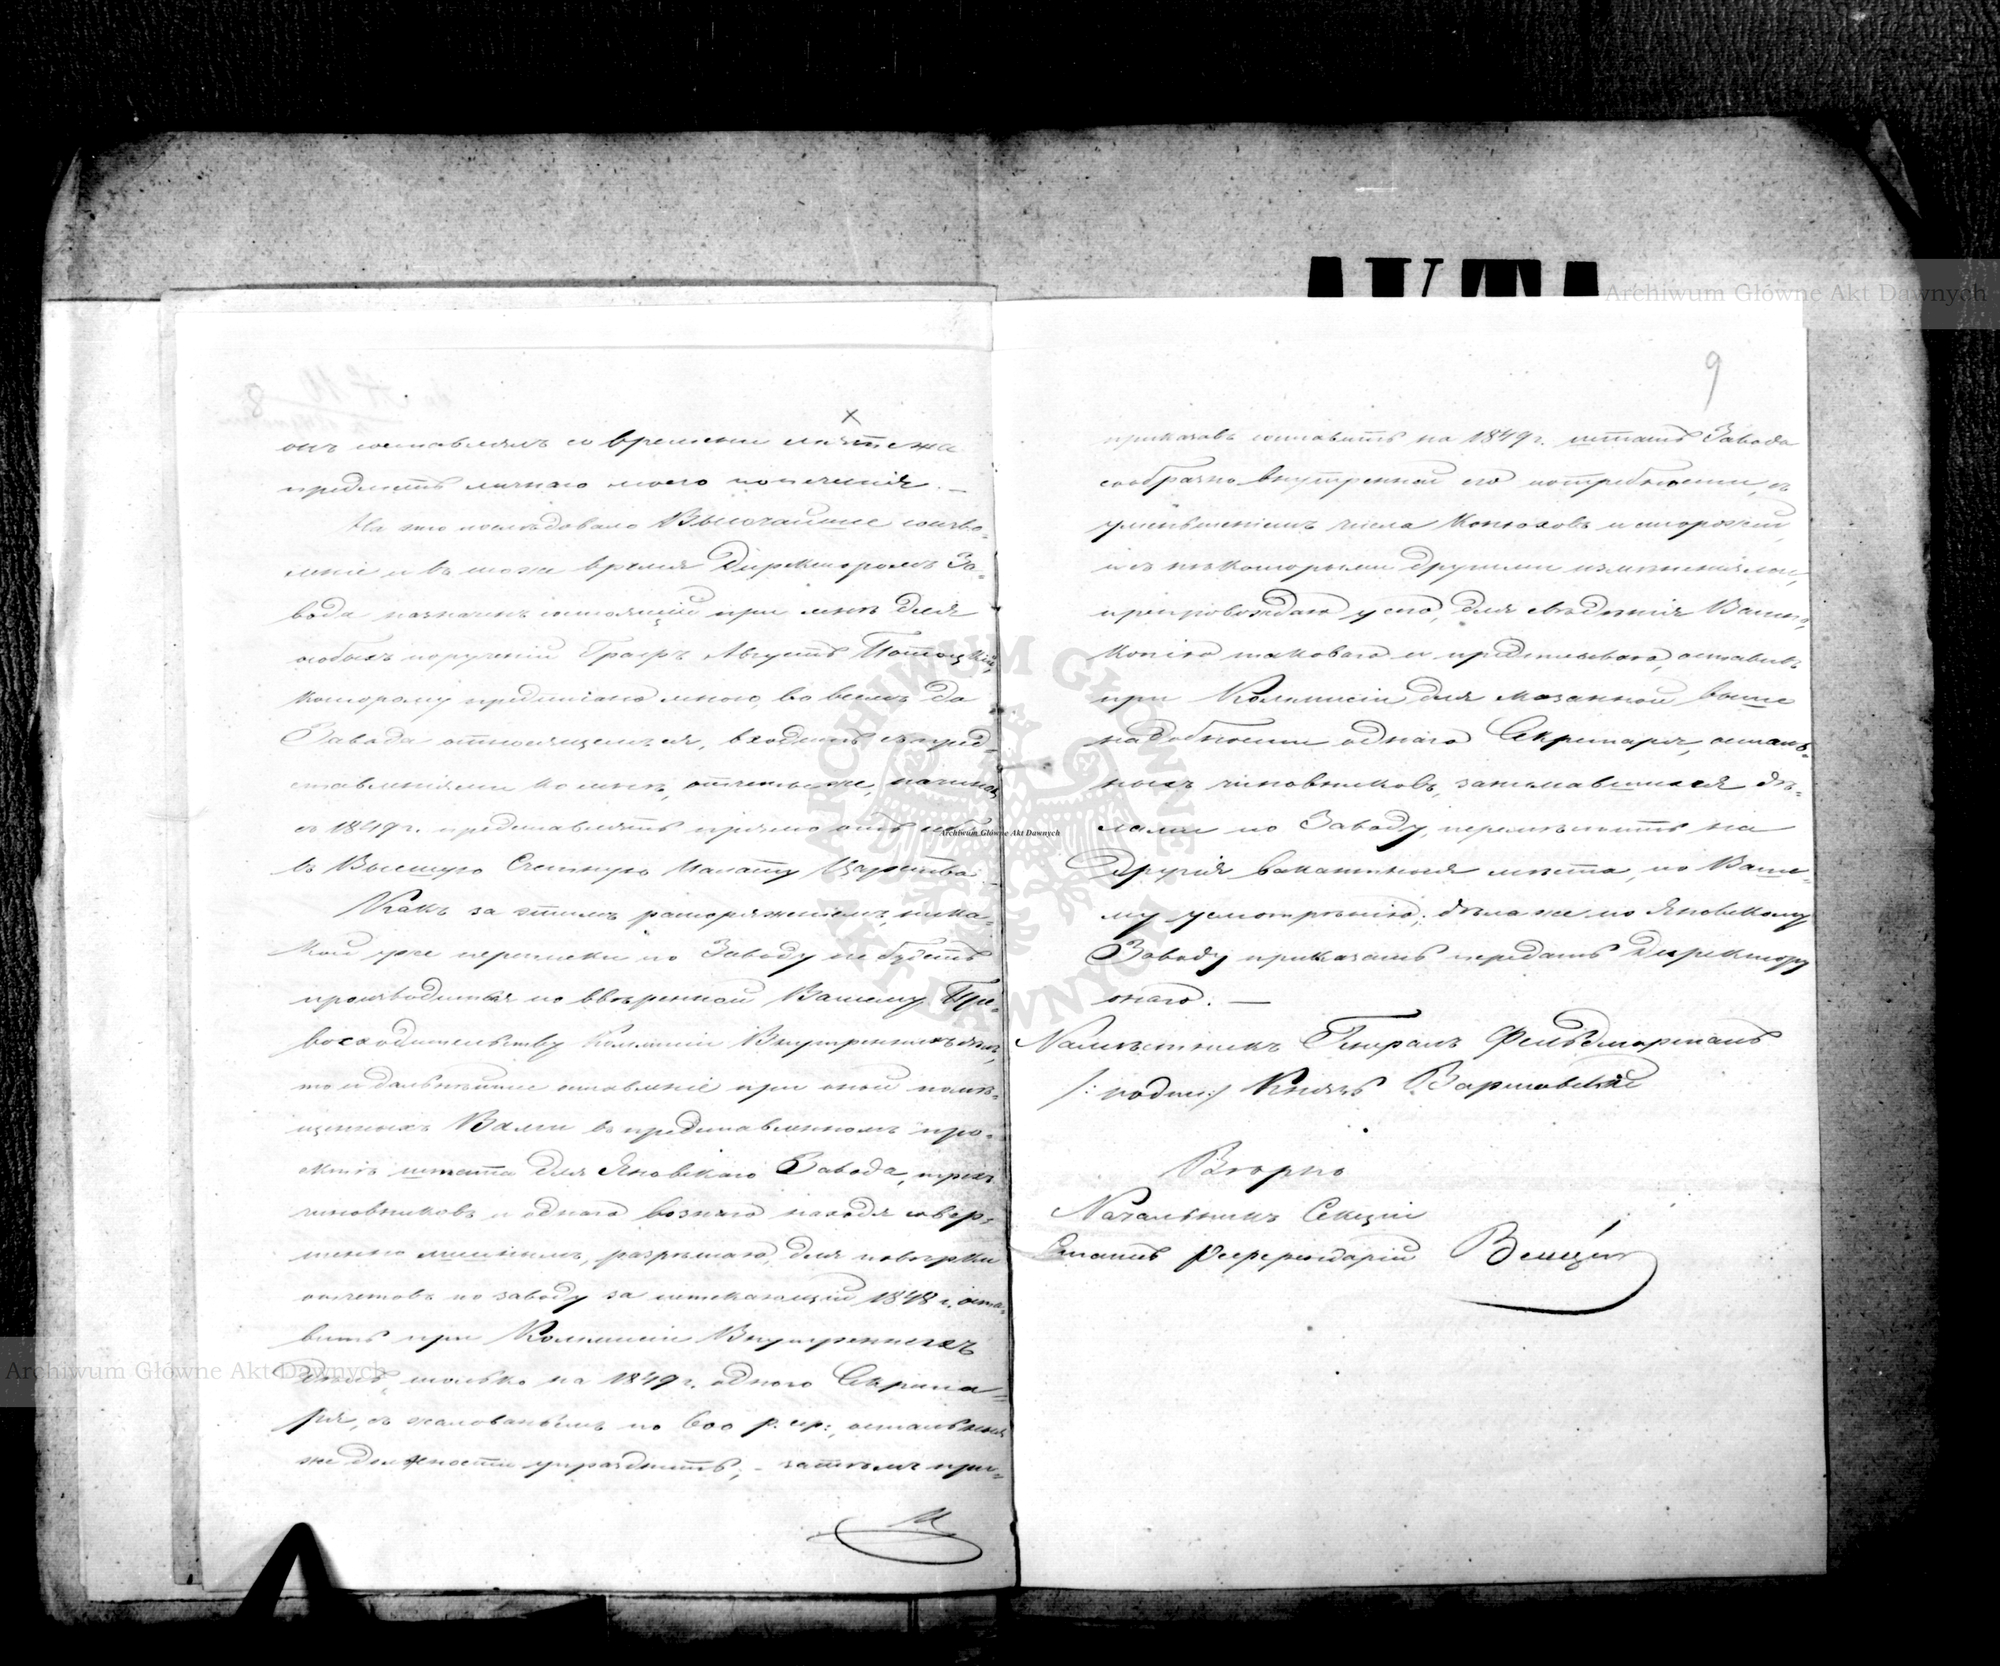 онъ составлялъ со времени мятежа
предметъ личнаго моего попеченія. —
На что послѣдовало Высочайшее соизво-
леніе и въ тоже время Директоромъ За-
вода назначенъ состоящій при мнѣ для
особыхъ порученій Графъ Августъ Потоцкій,
которому предписано мною, во всемъ до
Завода относящемся, входить съ пред-
ставленіями ко мнѣ, отчеты же, начиная
съ 1849 г. представлять прямо отъ себя
въ Высшую Счетную Палату Царства. —
Какъ за этимъ распоряженіемъ, ника-
кой уже переписки по Заводу не будетъ
производиться по ввѣренной Вашему Пре-
восходительству Коммисіи Внутреннихъ дѣлъ,
то и дальнѣйшее оставленіе при оной помѣ-
щенныхъ Вами въ представленномъ про-
ектѣ штата для Яновскаго Завода, трехъ
чиновниковъ и одного вознаго находя совер-
шенно лишнимъ, разрѣшаю, для повѣрки
отчетовъ по заводу за истекающій 1848 г. оста-
вить при Коммисіи Внутреннихъ
Дѣлъ, только на 1849 г. одного Секрета-
ря, съ жалованьемъ по 600 р. сер:, остальныя
же должности упразднить; - затѣмъ при-
9
приказавъ составить на 1849 г. штатъ Завода
сообразно внутренней его потребности, съ
уменьшеніемъ числа Конюховъ и сторожей,
и съ нѣкоторыми другими измѣненіями,
препровождаю у сего, для свѣденія Вашего,
копію таковаго и предписываю, оставивъ
при Коммисіи для сказанной выше
надобности одного Секретаря, осталь-
ныхъ чиновниковъ, занимавшихся дѣ-
лами по Заводу, перемѣстить на
другія вакантныя мѣста, по Ваше-
му усмотрѣнію; дѣла же по Яновскому
Заводу приказать передать Директору
онаго. —
Намѣстникъ Генералъ Фельдмаршалъ
/: подпис:/ Князь Варшавскій
Вѣрно
Начальникъ Секціи
Статсъ Референдарій
Archiwum Główne Akt Dawnych
Archiwum Główne Akt Dawnych
Archiwum Główne Akt Dawnych
ARCHIWUM GŁÓWNE AKT DAWNYCH